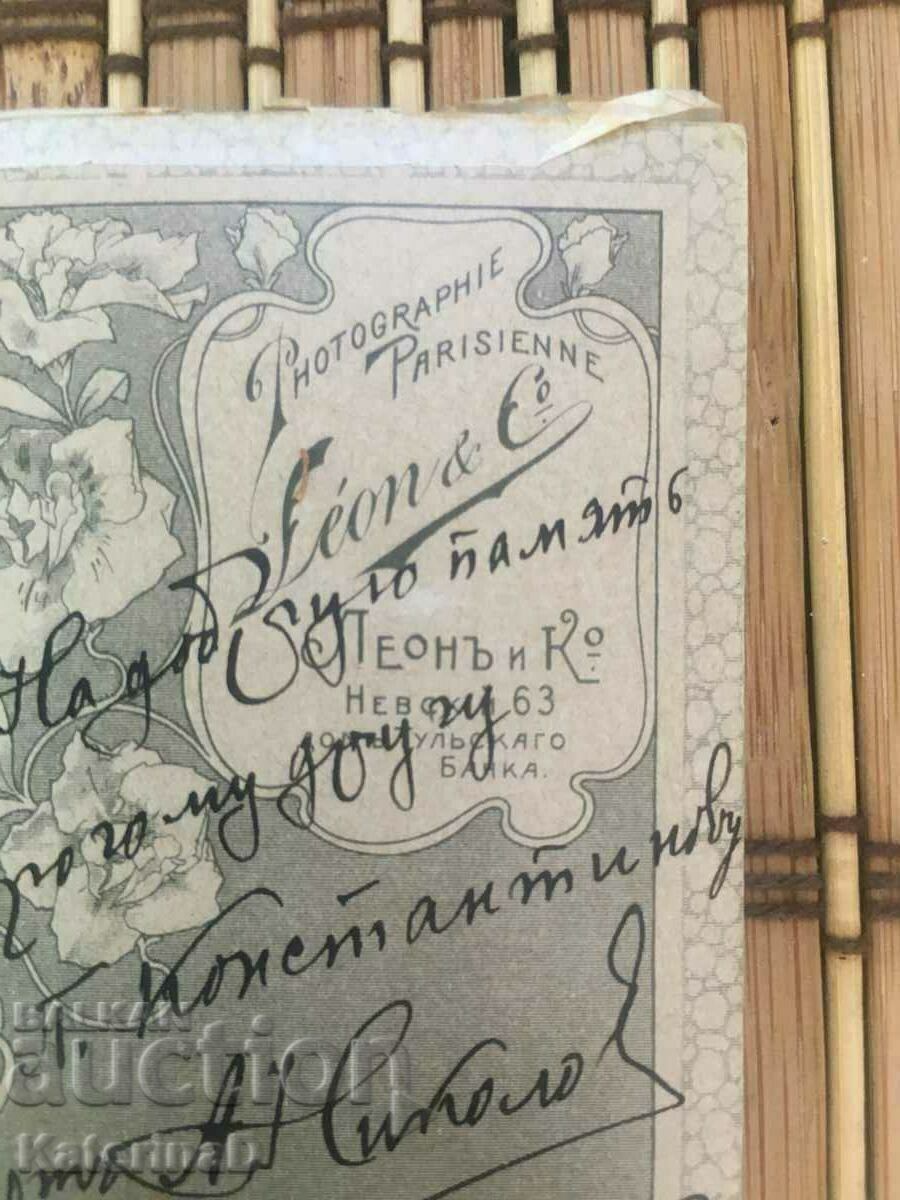 PHOTOGRAPHIE
PARISIENNE
Léon & Cº
ЛЕОНЪ И Кº
НЕВСКІЙ, 63
ДОМЪ ТУЛЬСКАГО
БАНКА.
На добрую память
рогому другу
Г. Константинову
отъ А. Николов
BALKAN
auction
KaterinaD